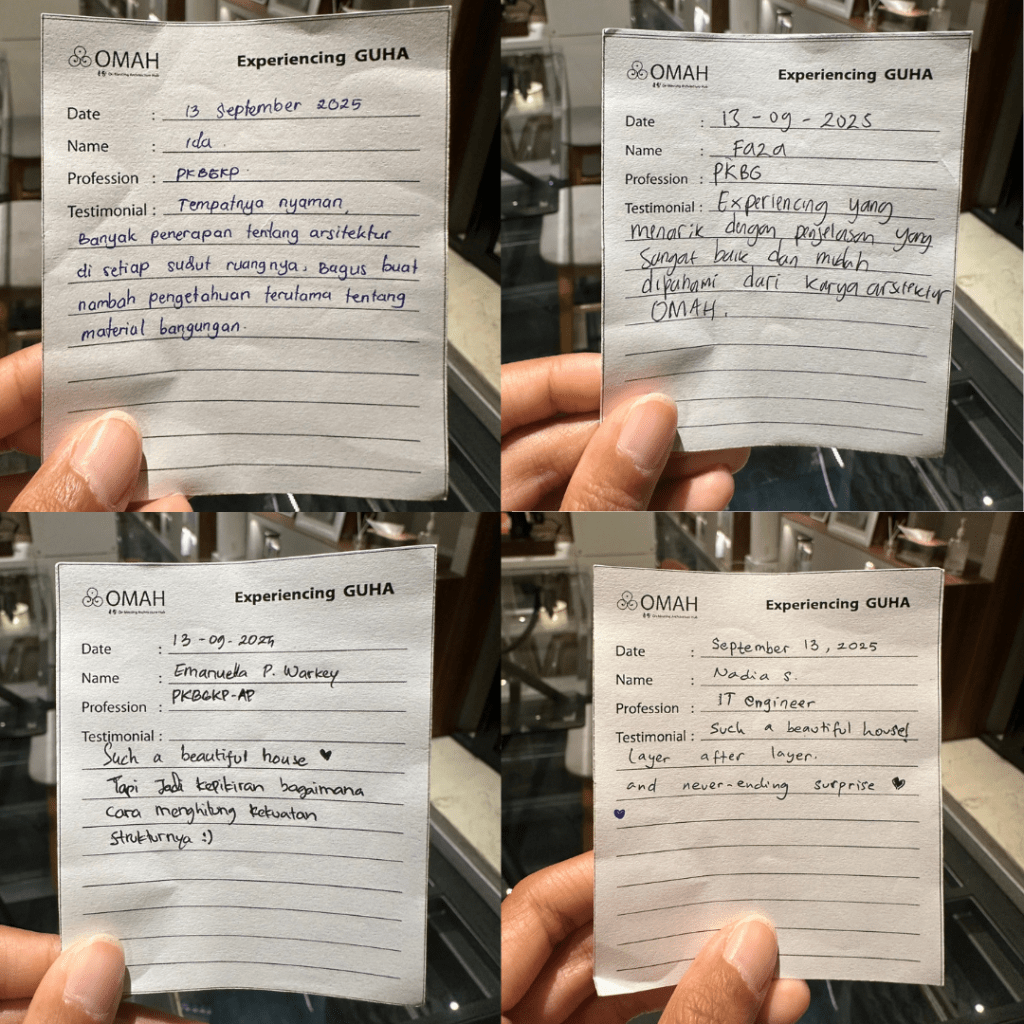 OMAH
Experiencing GUHA
Date : 13 September 2025
Name : Ida.
Profession : PKBGKP
Testimonial : Tempatnya nyaman,
Banyak penerapan tentang arsitektur
di setiap sudut ruangnya. Bagus buat
nambah pengetahuan terutama tentang
material bangungan.
OMAH
Experiencing GUHA
Date : 13 - 09 - 2025
Name : Faza
Profession : PKBG
Testimonial : Experiencing yang
menarik dengan penjelasan yang
Sangat baik dan mudah
dipahami dari karya arsitektur
OMAH.
OMAH
Experiencing GUHA
Date : 13 - 09 - 2025
Name : Emanuella P. Warkey
Profession : PKBGKP-AP
Testimonial :
Such a beautiful house ♥
Tapi Jadi kepikiran bagaimana
Cara menghitung kekuatan
Strukturnya :)
OMAH
Experiencing GUHA
Date : September 13, 2025
Name : Nadia S.
Profession : IT engineer
Testimonial : Such a beautiful house!
Layer after layer.
and never-ending surprise ♥
♥